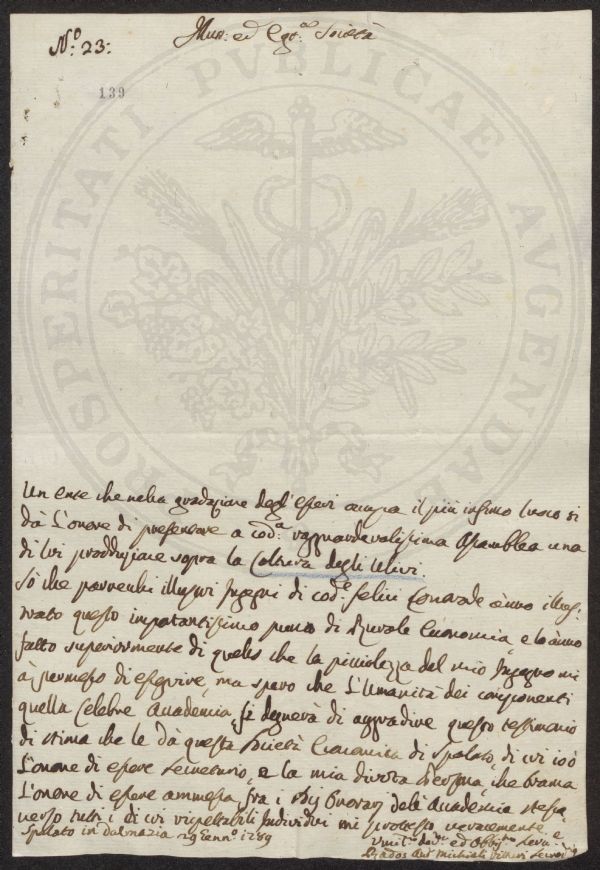 N.º 23:
Illus: ed Egr.ia Società
139
PROSPERITATI PVBLICAE AVGENDAE
Un Ente che nella gradazione degl'esseri occupa il più infimo luoco si
dà L'onore di presentare a cod.a ragguardevolissima Assamblea una
di lui produzione sopra la Coltura degli Ulivi.
Sò che parrecchi illustri Ingegni di cod.e felici Contrade ànno illus-
trato questo importantissimo punto di Rurale Economia, e lo ànno
fatto superiormente di quello che la picciolezza del mio Ingegno mi
à permesso di eseguire, ma spero che L'Umanità dei componenti
quella Celebre Accademia, si degnerà di aggradire questo testimonio
di stima che le dà questa Società Economica di Spalato, di cui io ò
L'onore di essere Secretario, e la mia divota che brama
L'onore di essere ammessa fra i Onorarj dell'Accademia stessa,
verso tutti i di cui rispettabili Individui mi protesto veracemente
Spalato in Dalmazia 29 Genn.o 1789
ed Obblig.mo Serv.